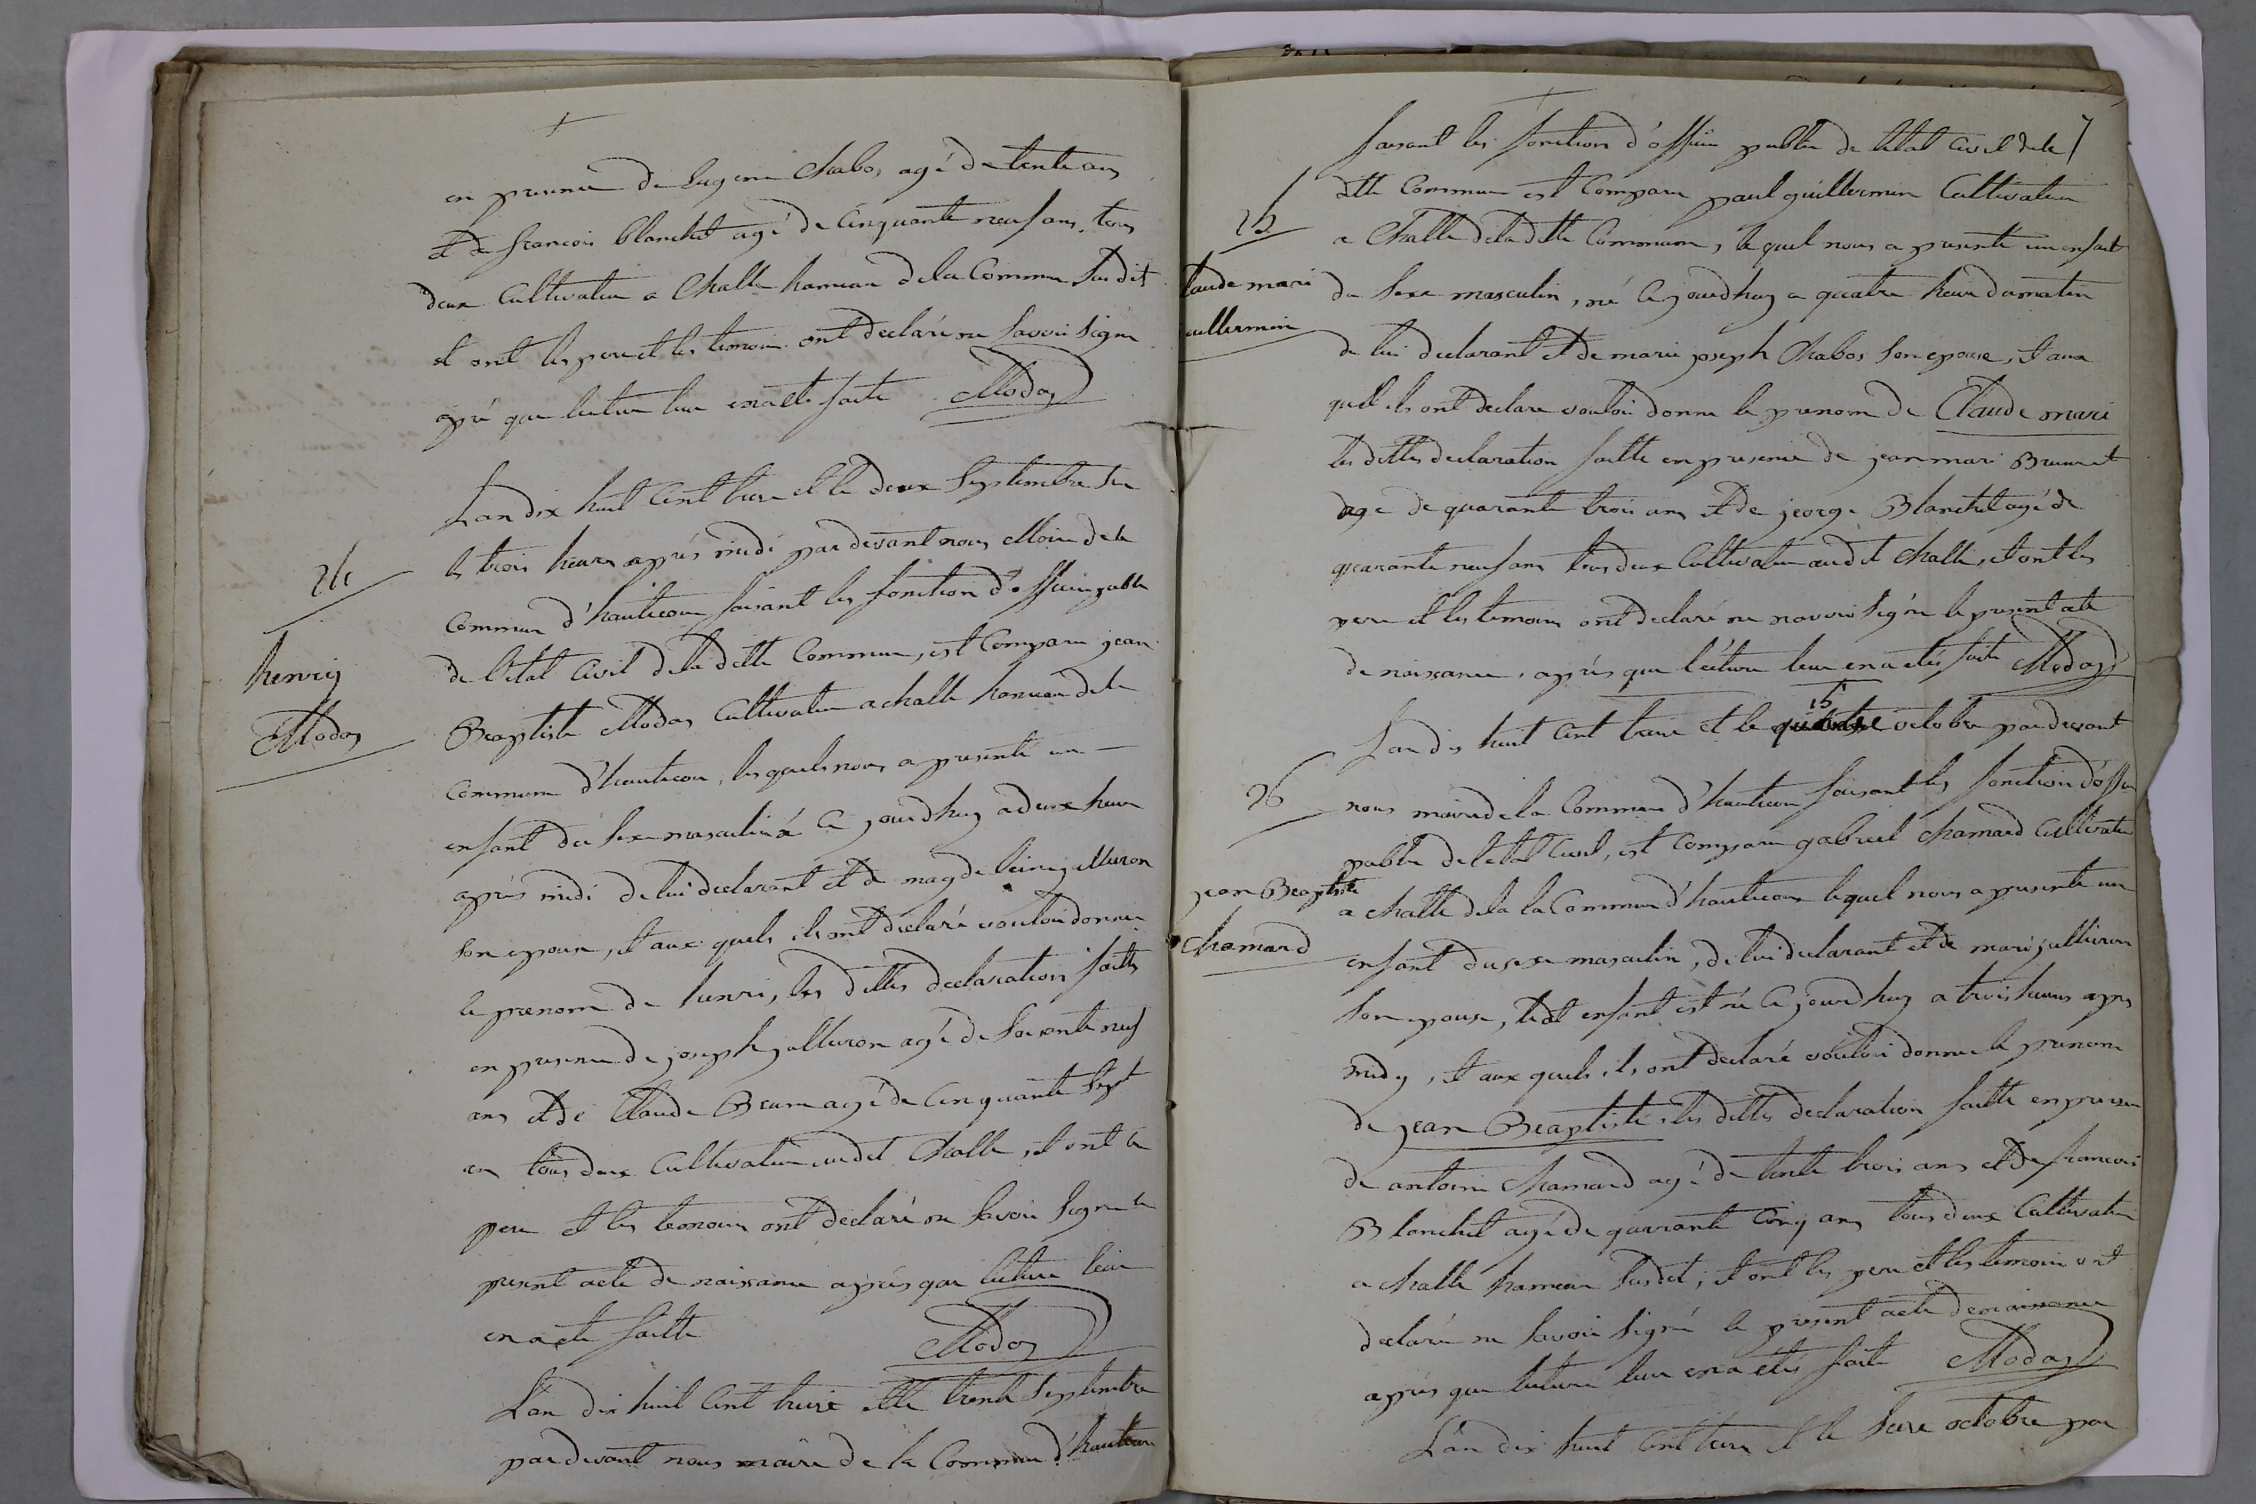 en presence de Eugene Chabos agé de trente ans
et de francois blanchet agé de cinquante neuf ans, tous
deux Cultivateur a Challe hameau de la Commune Susdit
et ont les pere et les temoin ont declaré ne Savoir Signe
apré que lecture leur en a eté faite Modas
L'an dix huit Cent treize et le deux Septembre Sur
les trois heures apprés midi par devant nous Maire de la
Commune d'hautecour faisant les fonction d'officier public
de l'etat Civil de la ditte Commune, est Comparu jean
Beaptiste Modas Cultivateur a challe hameau de la
Commune d'hautecour, lesquels nous a presenté un
enfant du Sexe masculin né Ce jourdhuy a deux heure
après midi de lui declarant et de magdeleine julleron
Son epouse, et aux quels ils ont declaré vouloir donner
le prenom de henri, les dittes declaration faitte
en presence de joseph julleron agé de Soixante neuf
ans et de Claude Beaume agé de Cinquante Sept
an tous deux Cultivateur audit Challe, et ont le
pere et les temoins ont declaré ne Savoir Signe le
present acte de naissance apprés que lecture leur
en a eté faitte Modas
L'an dix huit Cent treize et le trente Septembre
par devant nous maire de la Commune d'hautecour
24
henrij
Modas
7
faisant les fonction d'officier public de l'etat Civil de la
ditte Commune est Comparu paul guillermin Cultivateur
a Challe de la ditte Commune, le quel nous a presenté un enfant
du Sexe masculin, né Ce jourdhuy a quatre heure du matin
de lui declarant et de marie joseph Chabos Son epouse, et aux
quel ils ont declare vouloir donne le prenom de Claude mari
les dittes declaration faitte en presence de jean mari Brunet
age de quarante trois ans et de jeorge Blanchet agé de
quarante neuf ans tous deux Cultivateur audit challe, et ont les
pere et les temoins ont declaré ne savoir Signe le present acte
de naissance, apprés que lecture leur en a etés faite Modas
25
Claude mari
guillermin
L'an dix huit Cent treize et le 15 octobre par devant
nous maire de la Commune d'hautecour faisant les fonction d'officier
public de l'etat Civil, est Comparu gabriel chamard Cultivateur
a challe de la la Commune d'hautecour lequel nous a presenté un
enfant du sexe masculin, de lui declarant et de marie jullieron
Son epouse, ledit enfant est né Ce jourdhuy a trois heures apres
midy, et aux quels ils ont declaré vouloir donne le prenom
de jean Beaptiste, les dittes declaration faitte en presence
de antoine Chamard agé de trente trois ans et de francois
Blanchet agé de quarante Cinq ans tous deux Cultivateur
a challe hameau Susdit, et ont les pere et les temoin ont
declaré ne Savoir Signé le present acte de naissance
apprés que lecture leur en a etés faite Modas
L'an dix huit Cent treize et le Seize octobre par
26
jean Beaptiste
Chamard